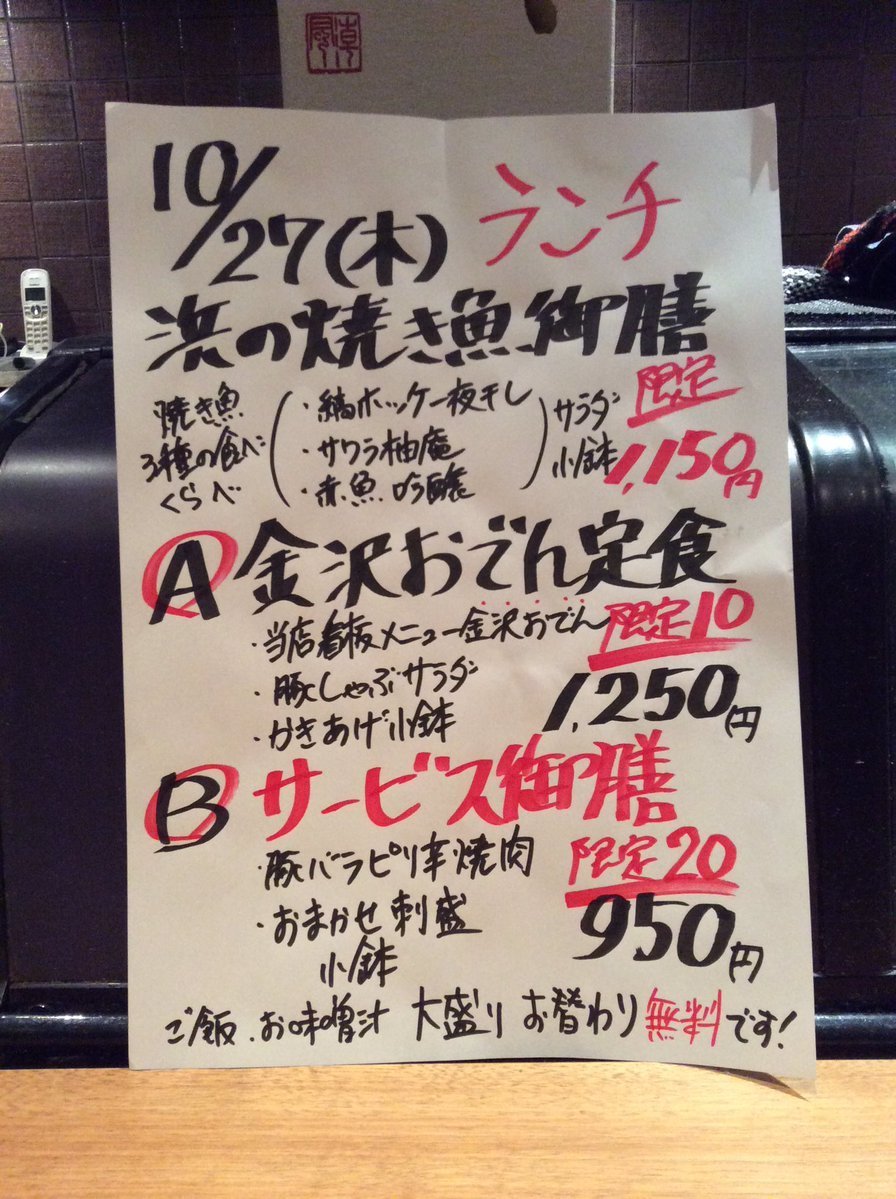 10/27(木) ランチ
浜の焼き魚御膳
限定
焼き魚
3種の食べ
くらべ
・縞ホッケ一夜干し
・サワラ柚庵
・赤魚吟醸
サラダ
小鉢
1,150円
A 金沢おでん定食
・当店看板メニュー金沢おでん
限定10
・豚しゃぶサラダ
・かきあげ小鉢
1,250円
B サービス御膳
・豚バラピリ辛焼肉
限定20
・おまかせ刺盛
小鉢
950円
ご飯.お味噌汁 大盛り お替わり無料です!